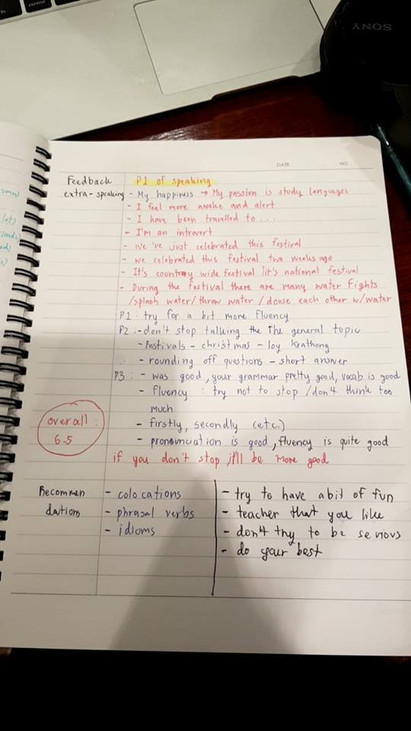 SONY
DATE
NO.
Feedback
extra-speaking
P1 of speaking
- My happiness → My passion is study languages
- I feel more awake and alert
- I have been travelled to ...
- I'm an introvert
- we've just celebrated this festival
- we celebrated this festival two weeks ago
- It's country wide festival /it's national festival
- During the festival there are many water fights
/splash water/throw water /douse each other w/water
P1: try for a bit more fluency
P2: - don't stop talking the the general topic
- festivals - christmas - loy krathong
- rounding off questions - short answer
P3: - was good, your grammar pretty good, vocab is good
- fluency : try not to stop /don't think too
much
- firstly, secondly (etc.)
- pronunciation is good, fluency is quite good
if you don't stop it'll be more good
overall :
6.5
Recommen
dations
- colocations
- phrasal verbs
- idioms
- try to have a bit of fun
- teacher that you like
- don't try to be serious
- do your best